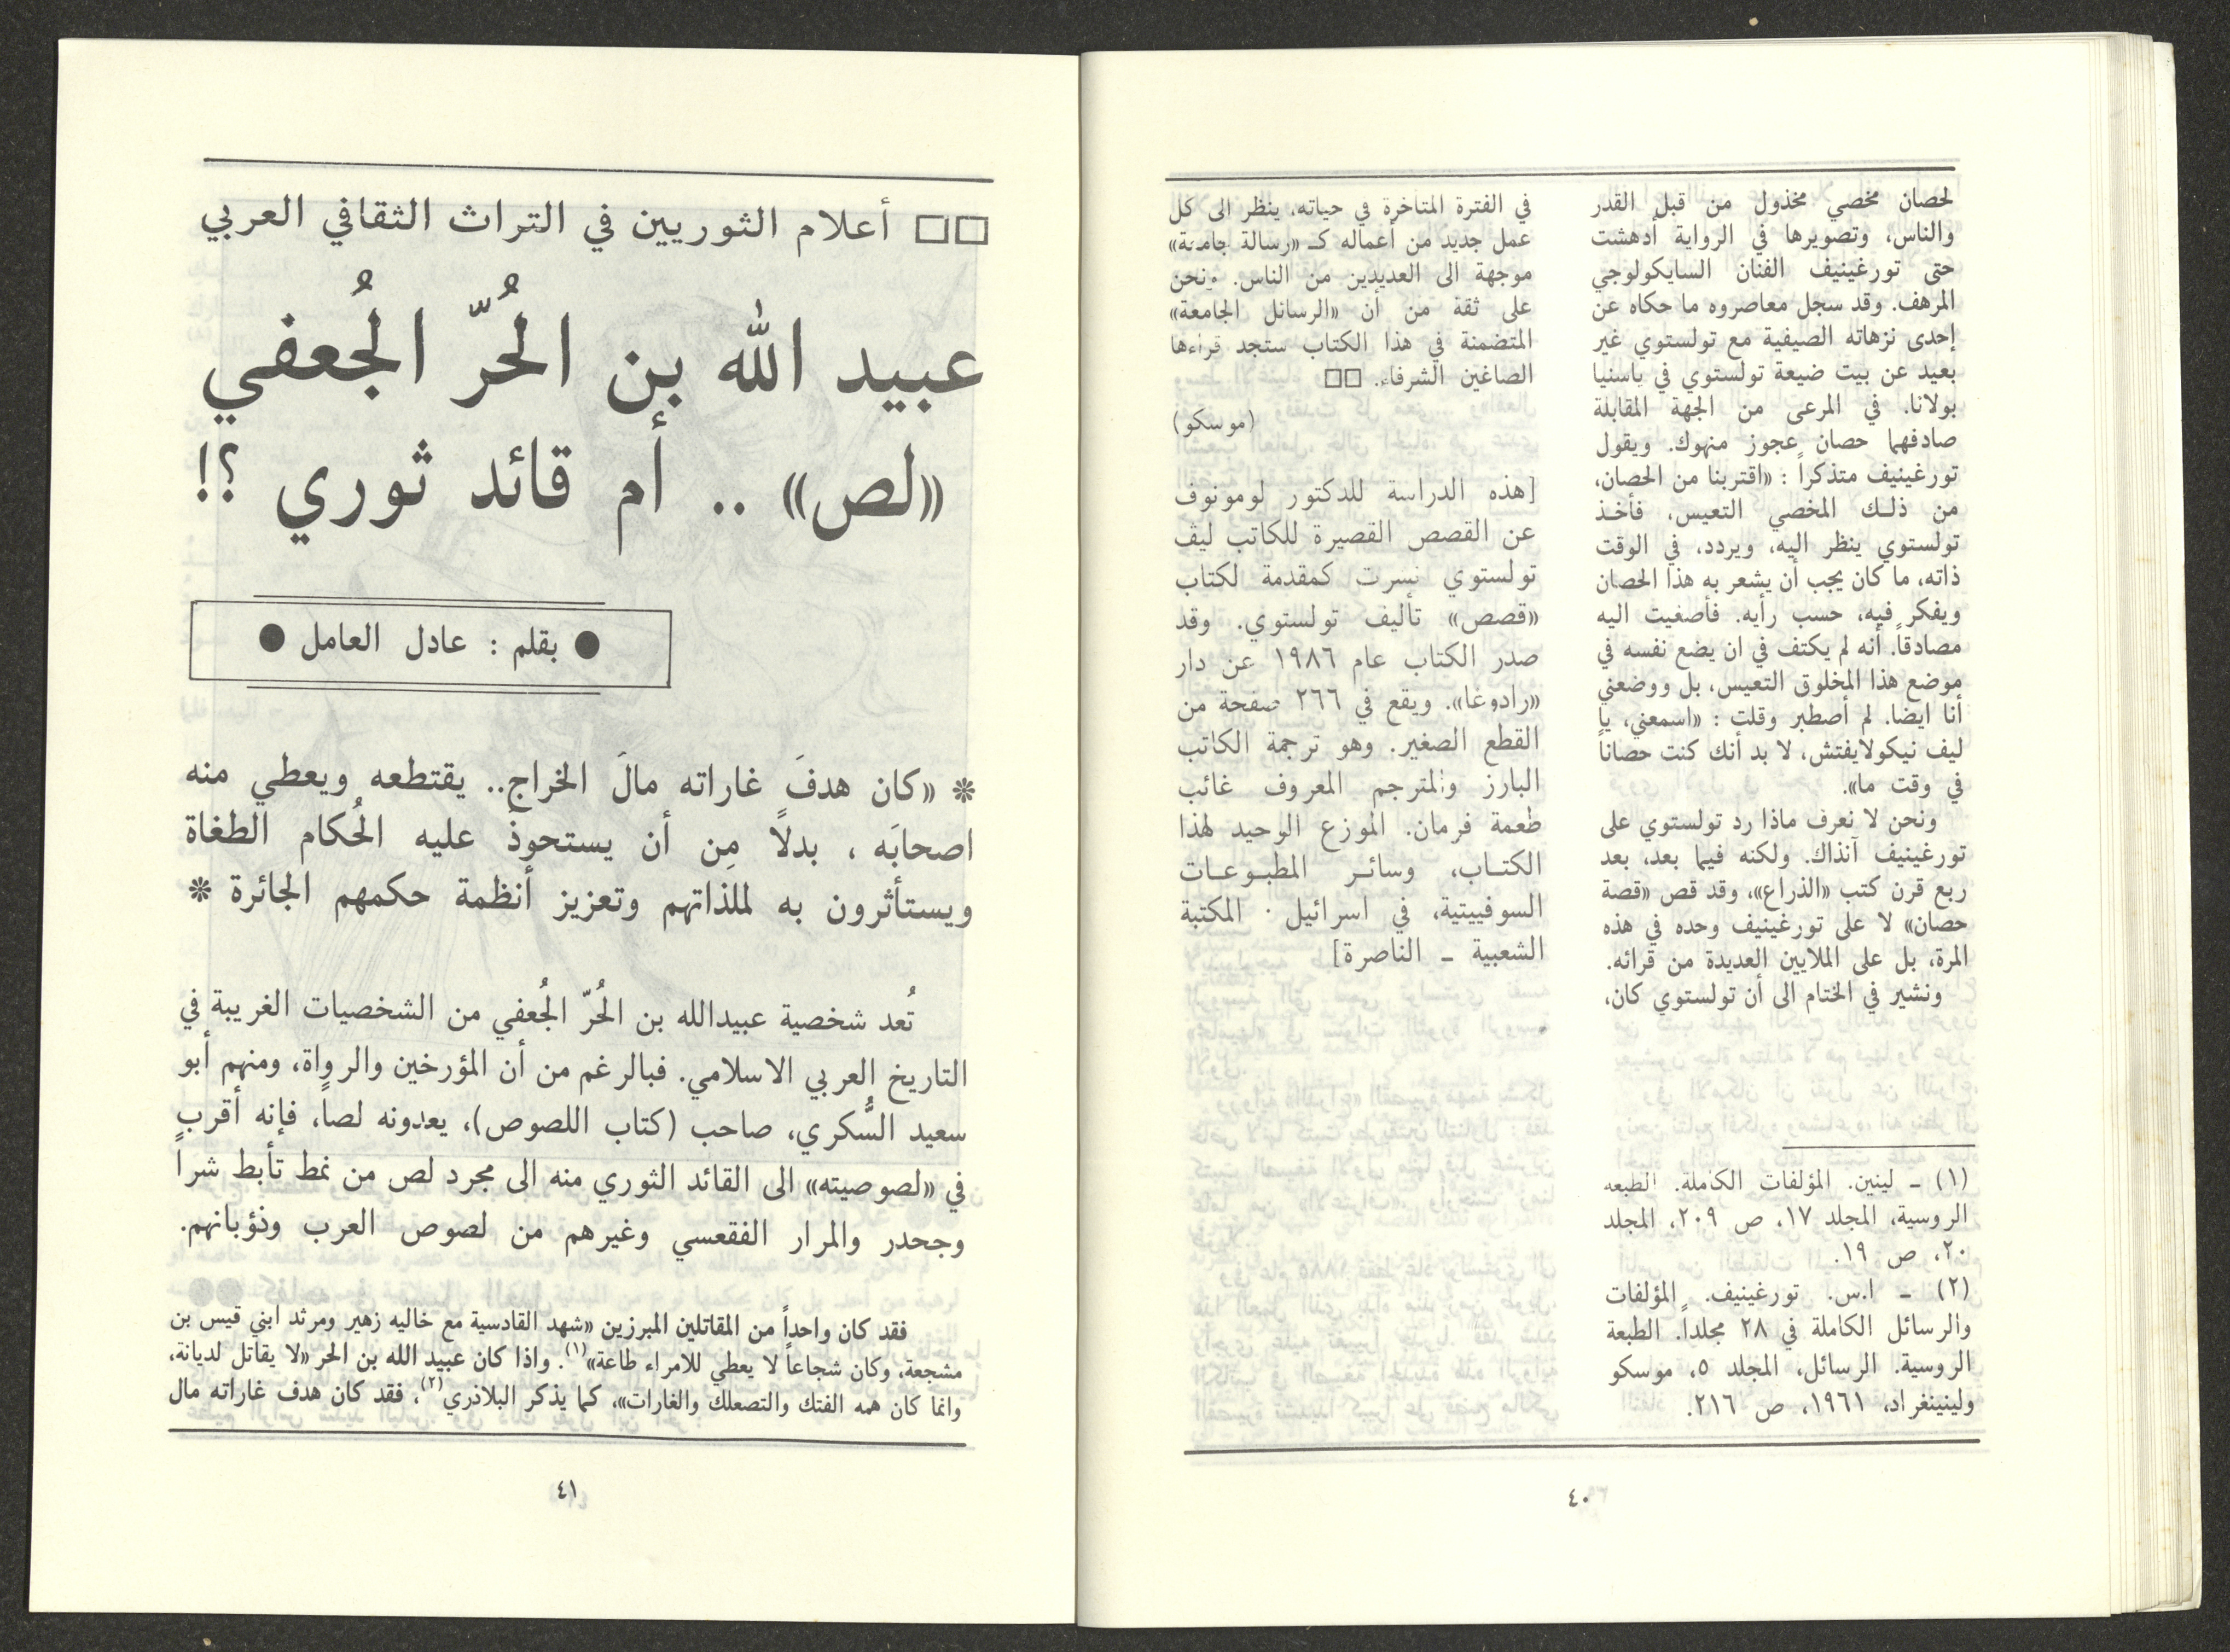 لحصان مخصي مخذول من قبل القدر
والناس، وتصويرها في الرواية أدهشت
حتى تورغينيف الفنان السايكولوجي
المرهف. وقد سجل معاصروه ما حكاه عن
إحدى نزهاته الصيفية مع تولستوي غير
بعيد عن بيت ضيعة تولستوي في ياسنيا
بولانا. في المرعى من الجهة المقابلة
صادفهما حصان عجوز منهوك. ويقول
تورغينيف متذكراً : «اقتربنا من الحصان،
من ذلك المخصي التعيس، فأخذ
تولستوي ينظر اليه، ويردد، في الوقت
ذاته، ما كان يجب أن يشعر به هذا الحصان
ويفكر فيه، حسب رأيه. فأصغيت اليه
مصادقاً. أنه لم يكتف في ان يضع نفسه في
موضع هذا المخلوق التعيس، بل ووضعني
أنا ايضا. لم أصطبر وقلت : «اسمعني، يا
ليف نيكولايفتش، لا بد أنك كنت حصاناً
في وقت ما».
ونحن لا نعرف ماذا رد تولستوي على
تورغينيف آنذاك. ولكنه فيما بعد، بعد
ربع قرن كتب «الذراع»، وقد قص «قصة
حصان» لا على تورغينيف وحده في هذه
المرة، بل على الملايين العديدة من قرائه.
ونشير في الختام الى أن تولستوي كان،
(١) ـ لينين. المؤلفات الكاملة. الطبعه
الروسية، المجلد ١٧، ص ٢٠٩، المجلد
٢٠، ص ١٩.
(٢) ـ ا.س. تورغينيف. المؤلفات
والرسائل الكاملة في ٢٨ مجلداً. الطبعة
الروسية. الرسائل، المجلد ٥، موسكو
ولينينغراد، ١٩٦١، ص ٢١٦.
في الفترة المتأخرة في حياته، ينظر الى كل
عمل جديد من أعماله كـ «رسالة جامعة»
موجهة الى العديدين من الناس. ونحن
على ثقة من أن «الرسائل الجامعة»
المتضمنة في هذا الكتاب ستجد قراءها
الصاغين الشرفاء. □□
(موسكو)
[هذه الدراسة للدكتور لومونوف
عن القصص القصيرة للكاتب ليف
تولستوي نشرت كمقدمة لكتاب
«قصص» تأليف تولستوي. وقد
صدر الكتاب عام ١٩٨٦ عن دار
«رادوغا». ويقع في ٢٦٦ صفحة من
القطع الصغير. وهو ترجمة الكاتب
البارز والمترجم المعروف غائب
طعمة فرمان. الموزع الوحيد لهذا
الكتـاب، وسائـر المطبـوعـات
السوفييتية، في اسرائيل · المكتبة
الشعبية ـ الناصرة]
٤٠
□□ أعلام الثوريين في التراث الثقافي العربي
عبيد الله بن الحُرّ الجُعفي
«لص» .. أم قائد ثوري ؟!
● بقلم : عادل العامل ●
* «كان هدفَ غاراته مالَ الخراج.. يقتطعه ويعطي منه
اصحابَه ، بدلاً مِن أن يستحوذ عليه الحُكام الطغاة
ويستأثرون به لملذاتهم وتعزيز أنظمة حكمهم الجائرة *
تُعد شخصية عبيدالله بن الحُرّ الجُعفي من الشخصيات الغريبة في
التاريخ العربي الاسلامي. فبالرغم من أن المؤرخين والرواة، ومنهم أبو
سعيد السُّكري، صاحب (كتاب اللصوص)، يعدونه لصاً، فإنه أقرب
في «لصوصيته» الى القائد الثوري منه الى مجرد لص من نمط تأبط شراً
وجحدر والمرار الفقعسي وغيرهم من لصوص العرب وذؤبانهم.
فقد كان واحداً من المقاتلين المبرزين «شهد القادسية مع خاليه زهير ومرثد ابني قيس بن
مشجعة، وكان شجاعاً لا يعطي للامراء طاعة»(١). واذا كان عبيد الله بن الحر «لا يقاتل لديانة،
وانما كان همه الفتك والتصعلك والغارات»، كما يذكر البلاذري(٢)، فقد كان هدف غاراته مال
٤١